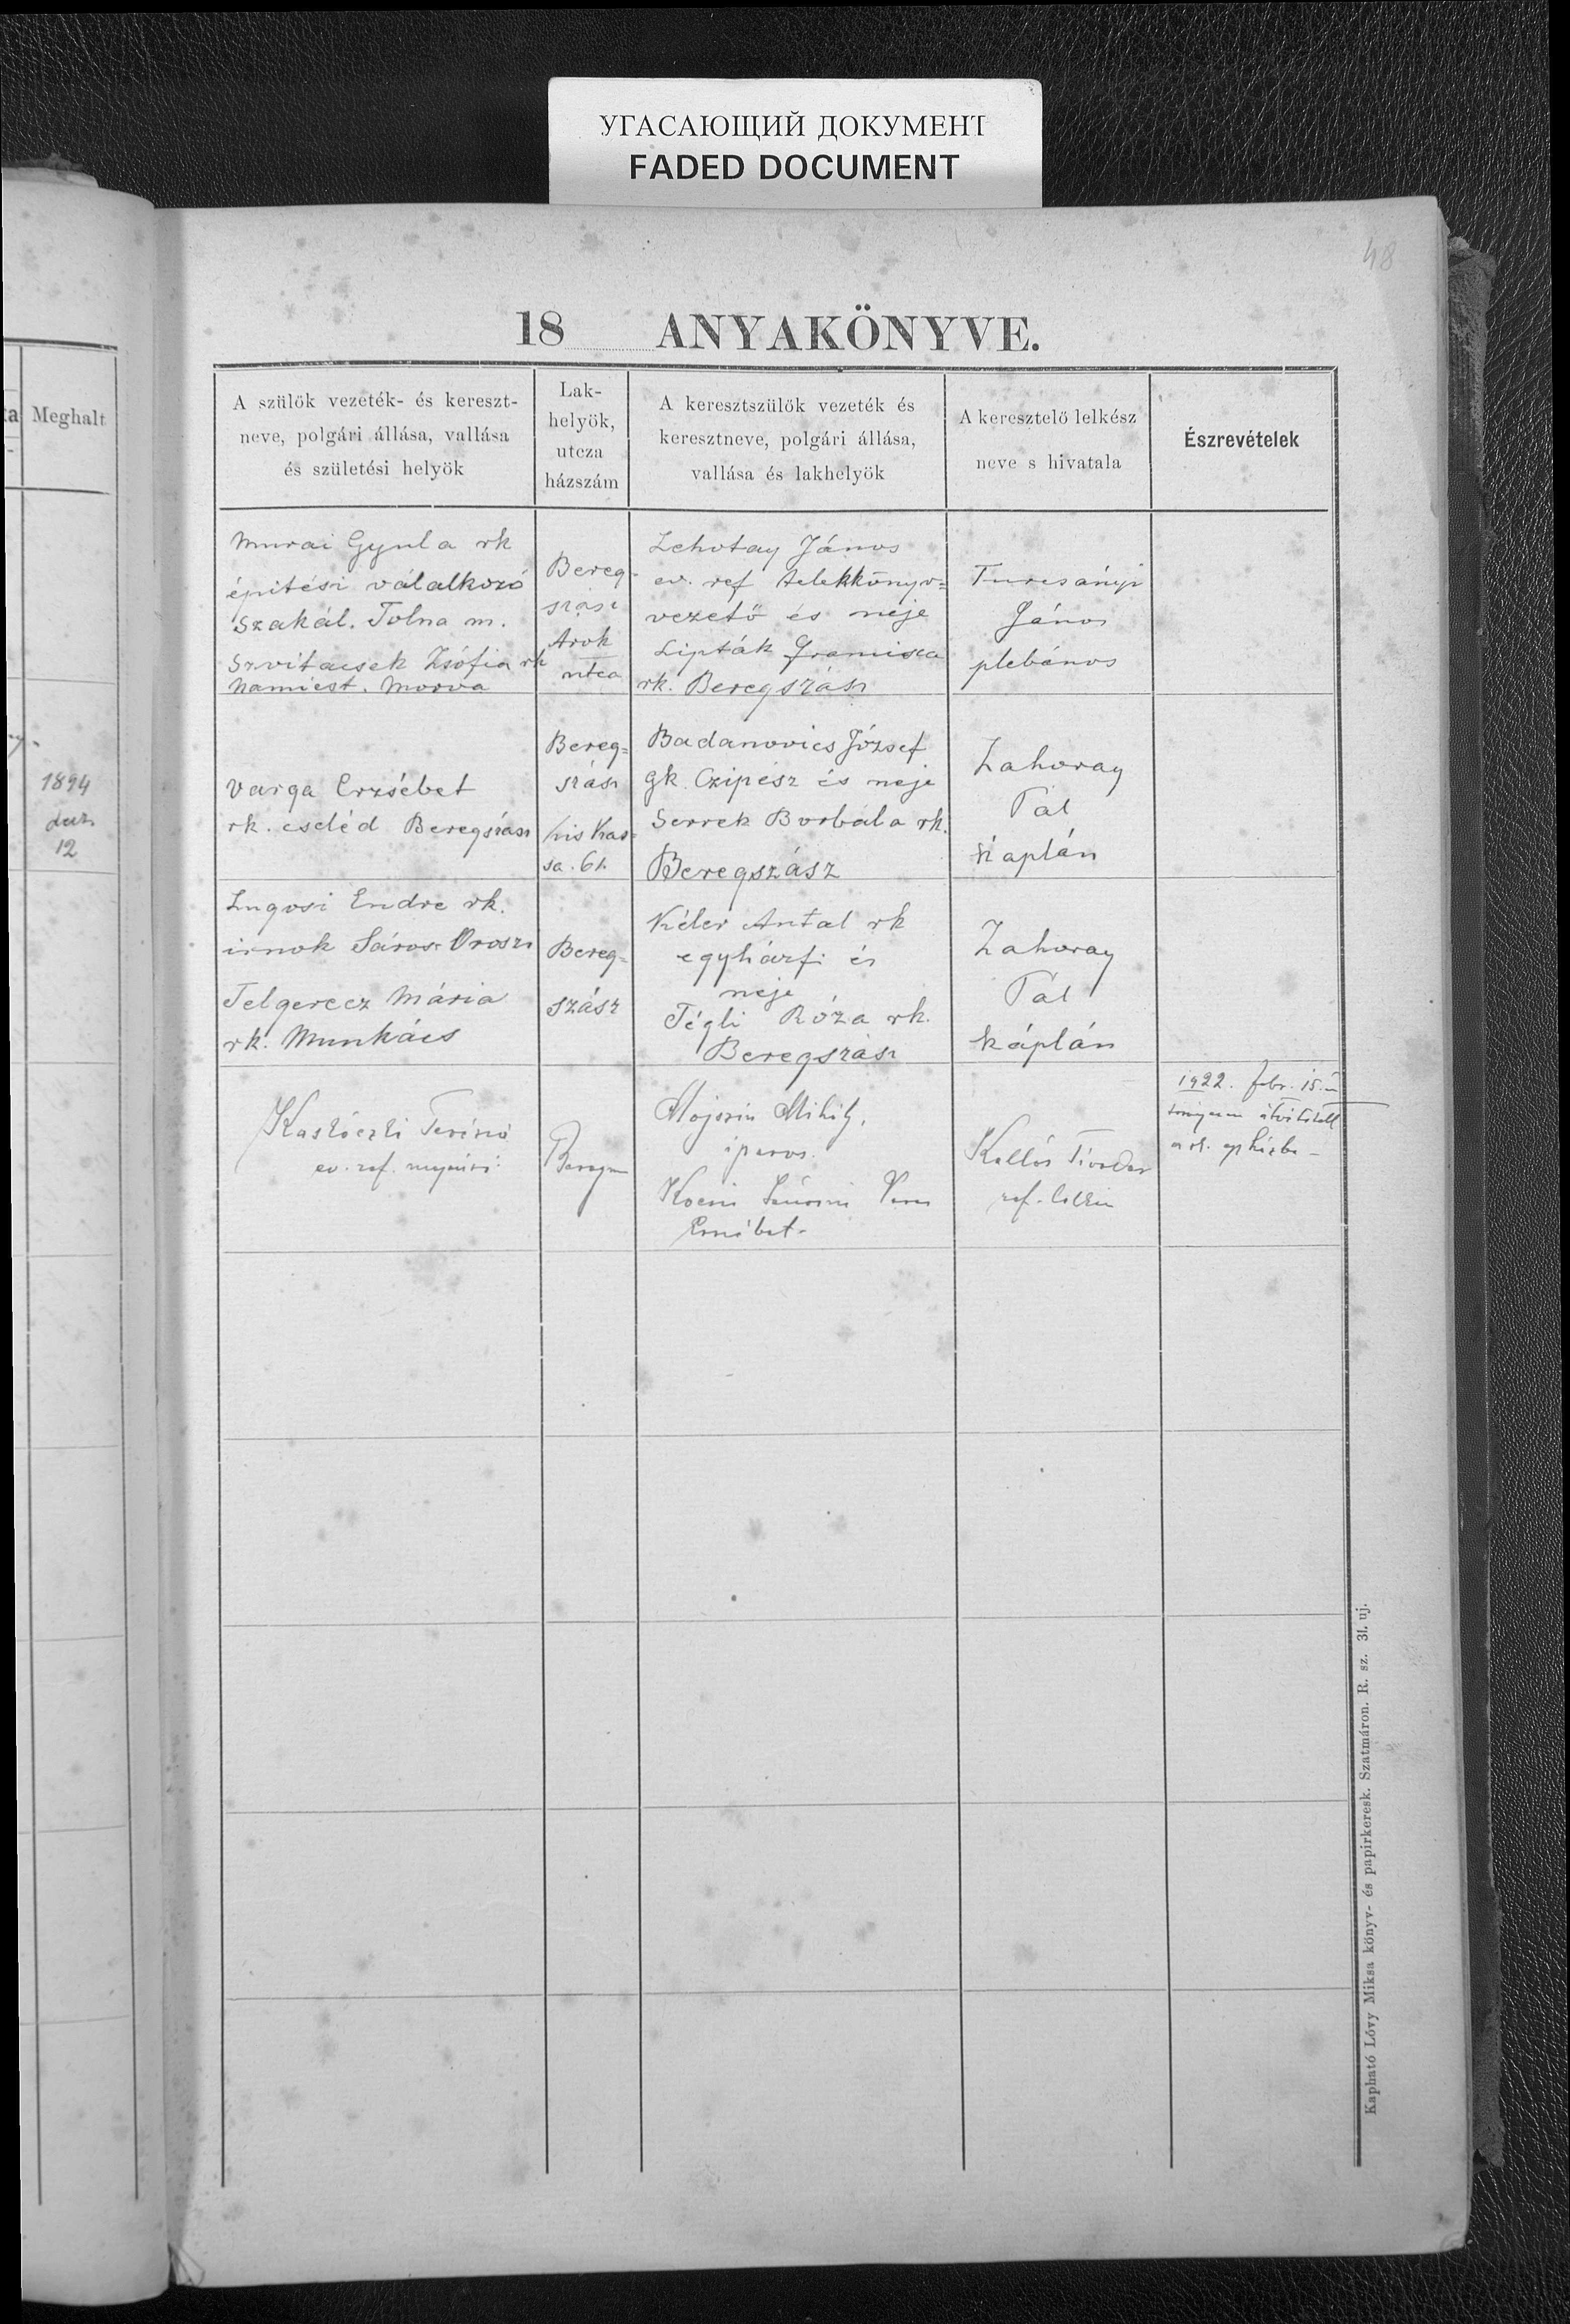 УГАСАЮЩИЙ ДОКУМЕНТ
FADED DOCUMENT
48
18 ANYAKÖNYVE.
ta Meghalt
A szülök vezeték- és kereszt-
neve, polgári állása, vallása
és születési helyök
Lak-
helyök,
utcza
házszám
A keresztszülök vezeték és
keresztneve, polgári állása,
vallása és lakhelyök
A keresztelő lelkész
neve s hivatala
Észrevételek
Murai Gyula rk
épitési válalkozó
Szakál. Tolna m.
Szvitacsek Zsófia rk
Namiest. Morva
Bereg-
szász
Arok
utca
Lehotay János
ev. ref telekkönyv=
vezető és neje
Lipták
rk. Beregszász
Turcsányi
János
plebános
1894
dec.
12
Varga Erzsébet
rk. cseléd Beregszász
Bereg=
szász
Kis Kas=
sa. 61.
Badanovics József
gk. Czipész és neje
Serrek Borbála rk.
Beregszász
Zahoray
Pál
Káplán
Lugosi Endre rk.
irnok Sáros-Oroszi
Telgerecz Mária
rk. Munkács
Bereg=
szász
Kéler Antal rk
egyházfi és
neje
Tégli Róza rk.
Beregszász
Zahoray
Pál
káplán
Kaszóczki
ev. ref.
Mihály,
iparos.
Erzsébet.
Kallós Tivadar
ref. lelkész
1922. febr. 15.-n
Kapható Lővy Miksa könyv- és papirkeresk. Szatmáron. R. sz. 31. uj.